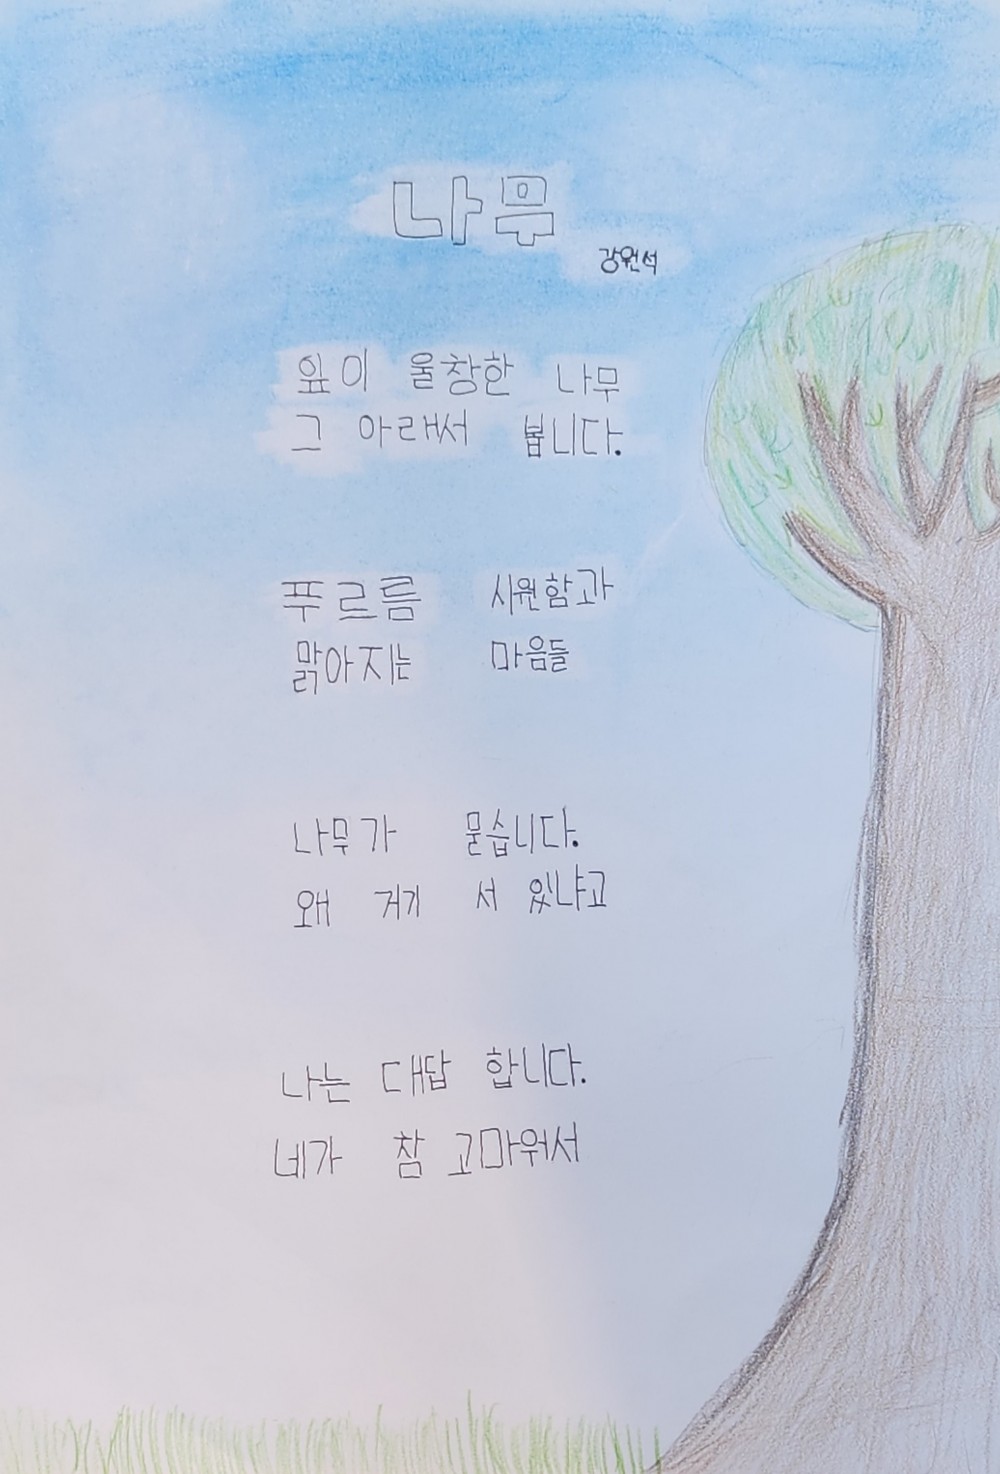 나무
강원석
잎이 울창한 나무
그 아래서 봅니다.
푸르름 시원함과
맑아지는 마음들
나무가 묻습니다.
왜 거기 서 있냐고
나는 대답 합니다.
네가 참 고마워서